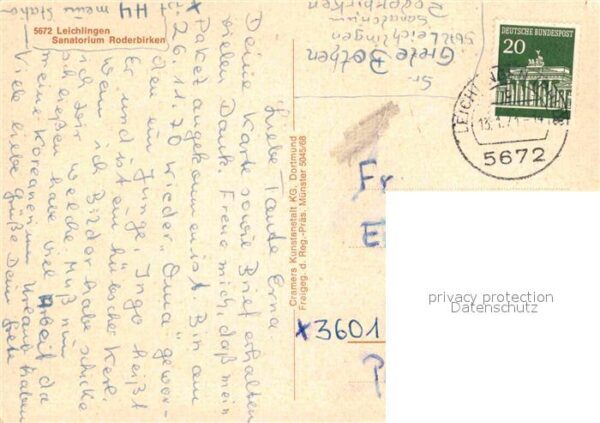 5672 Leichlingen
Sanatorium Roderbirken
Liebe Tante Erna!
Deine Karte sowie Brief erhalten
vielen Dank. Freue mich, daß mein
Paket angekommen ist. Bin am
26.11.70 wieder „Oma" gewor-
den ein Junge, Ingo heißt
Er und ist ein hübscher Kerl.
Wenn ich Bilder habe schicke
ich Dir welche. Muß nun
schließen habe viel Arbeit da
meine Koreanerin Urlaub haben
Viele liebe Grüße Deine Grete
x
ist H4 meine
Cramers Kunstanstalt KG. Dortmund
Freigeg. d. Reg.-Präs. Münster 5045/68
Sr. Grete Bothen
5672 Leichlingen
Sanatorium
Roderbirken
DEUTSCHE BUNDESPOST
20
5672
Fr
x3601
privacy protection
Datenschutz